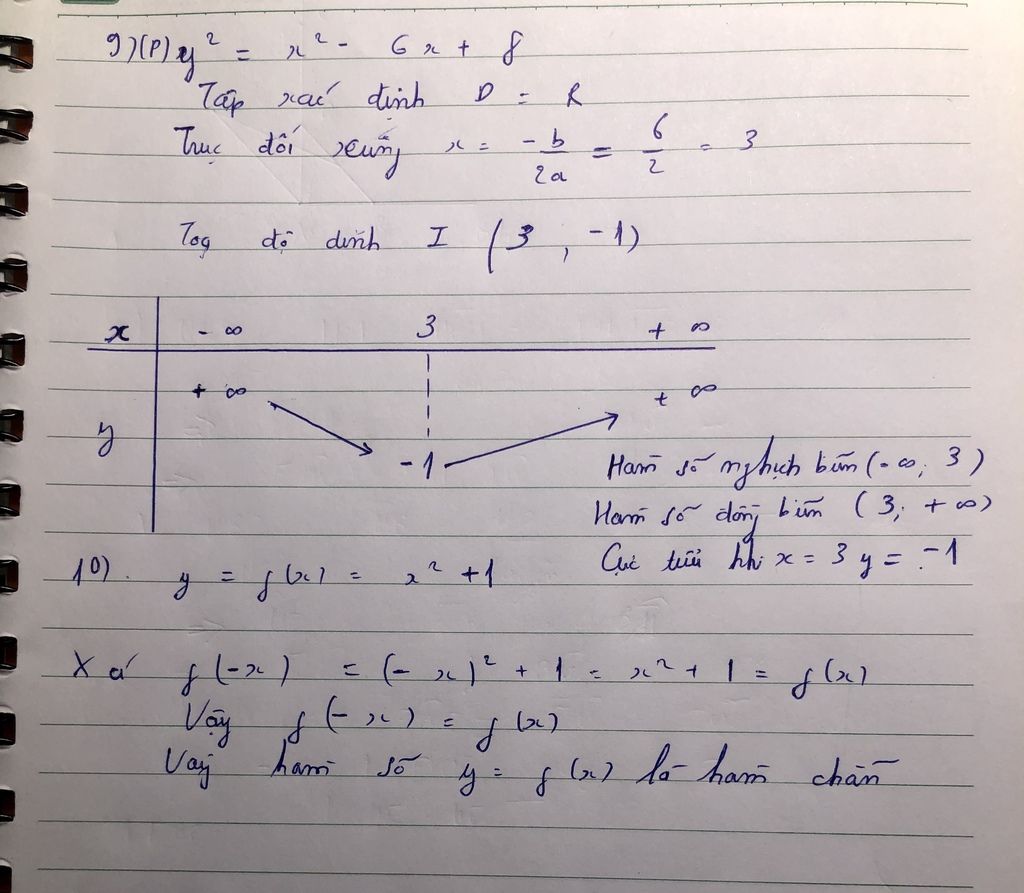 9) (P) y² = x² - 6x + 8
Tập xác định D = R
Trục đối xứng x = -b/2a = 6/2 = 3
Toạ độ đỉnh I (3, -1)
x -∞ 3 +∞
+∞ +∞
y
-1
Hàm số nghịch biến (-∞; 3)
Hàm số đồng biến (3; +∞)
Cực tiểu khi x = 3 y = -1
10). y = f(x) = x² + 1
Xét f(-x) = (-x)² + 1 = x² + 1 = f(x)
Vậy f(-x) = f(x)
Vậy hàm số y = f(x) là hàm chẵn